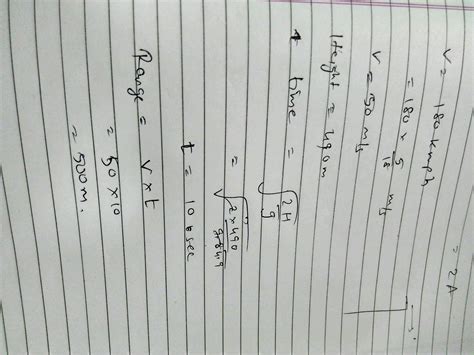 = 2A
V = 180 kmph
= 180 × 5/18 m/s
V = 50 m/s
Height = 490m
t time = √(2H/g)
= √(2×490/9.8)
t = 10 sec
Range = V × t
= 50 × 10
= 500m.